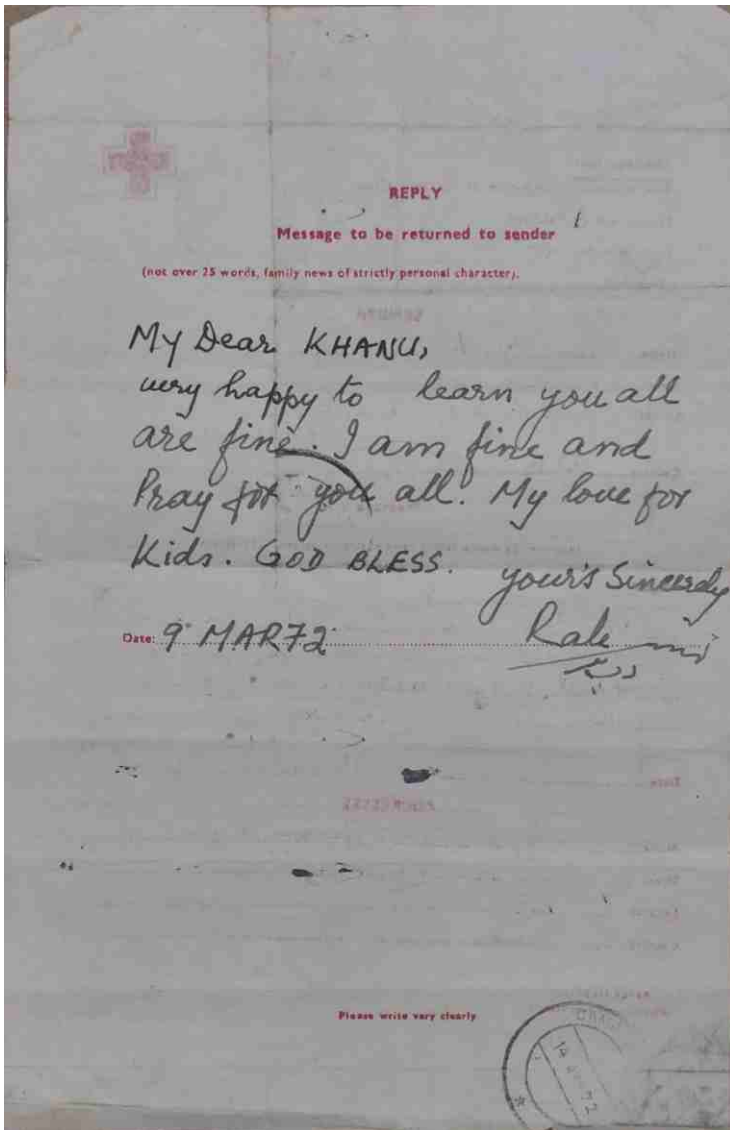 REPLY
Message to be returned to sender
(not over 25 words, family news of strictly personal character).
My Dear KHANU,
very happy to learn you all
are fine. I am fine and
Pray for you all. My love for
Kids. GOD BLESS. your's Sincerely
Date: 9 MAR72
Please write very clearly
14 72